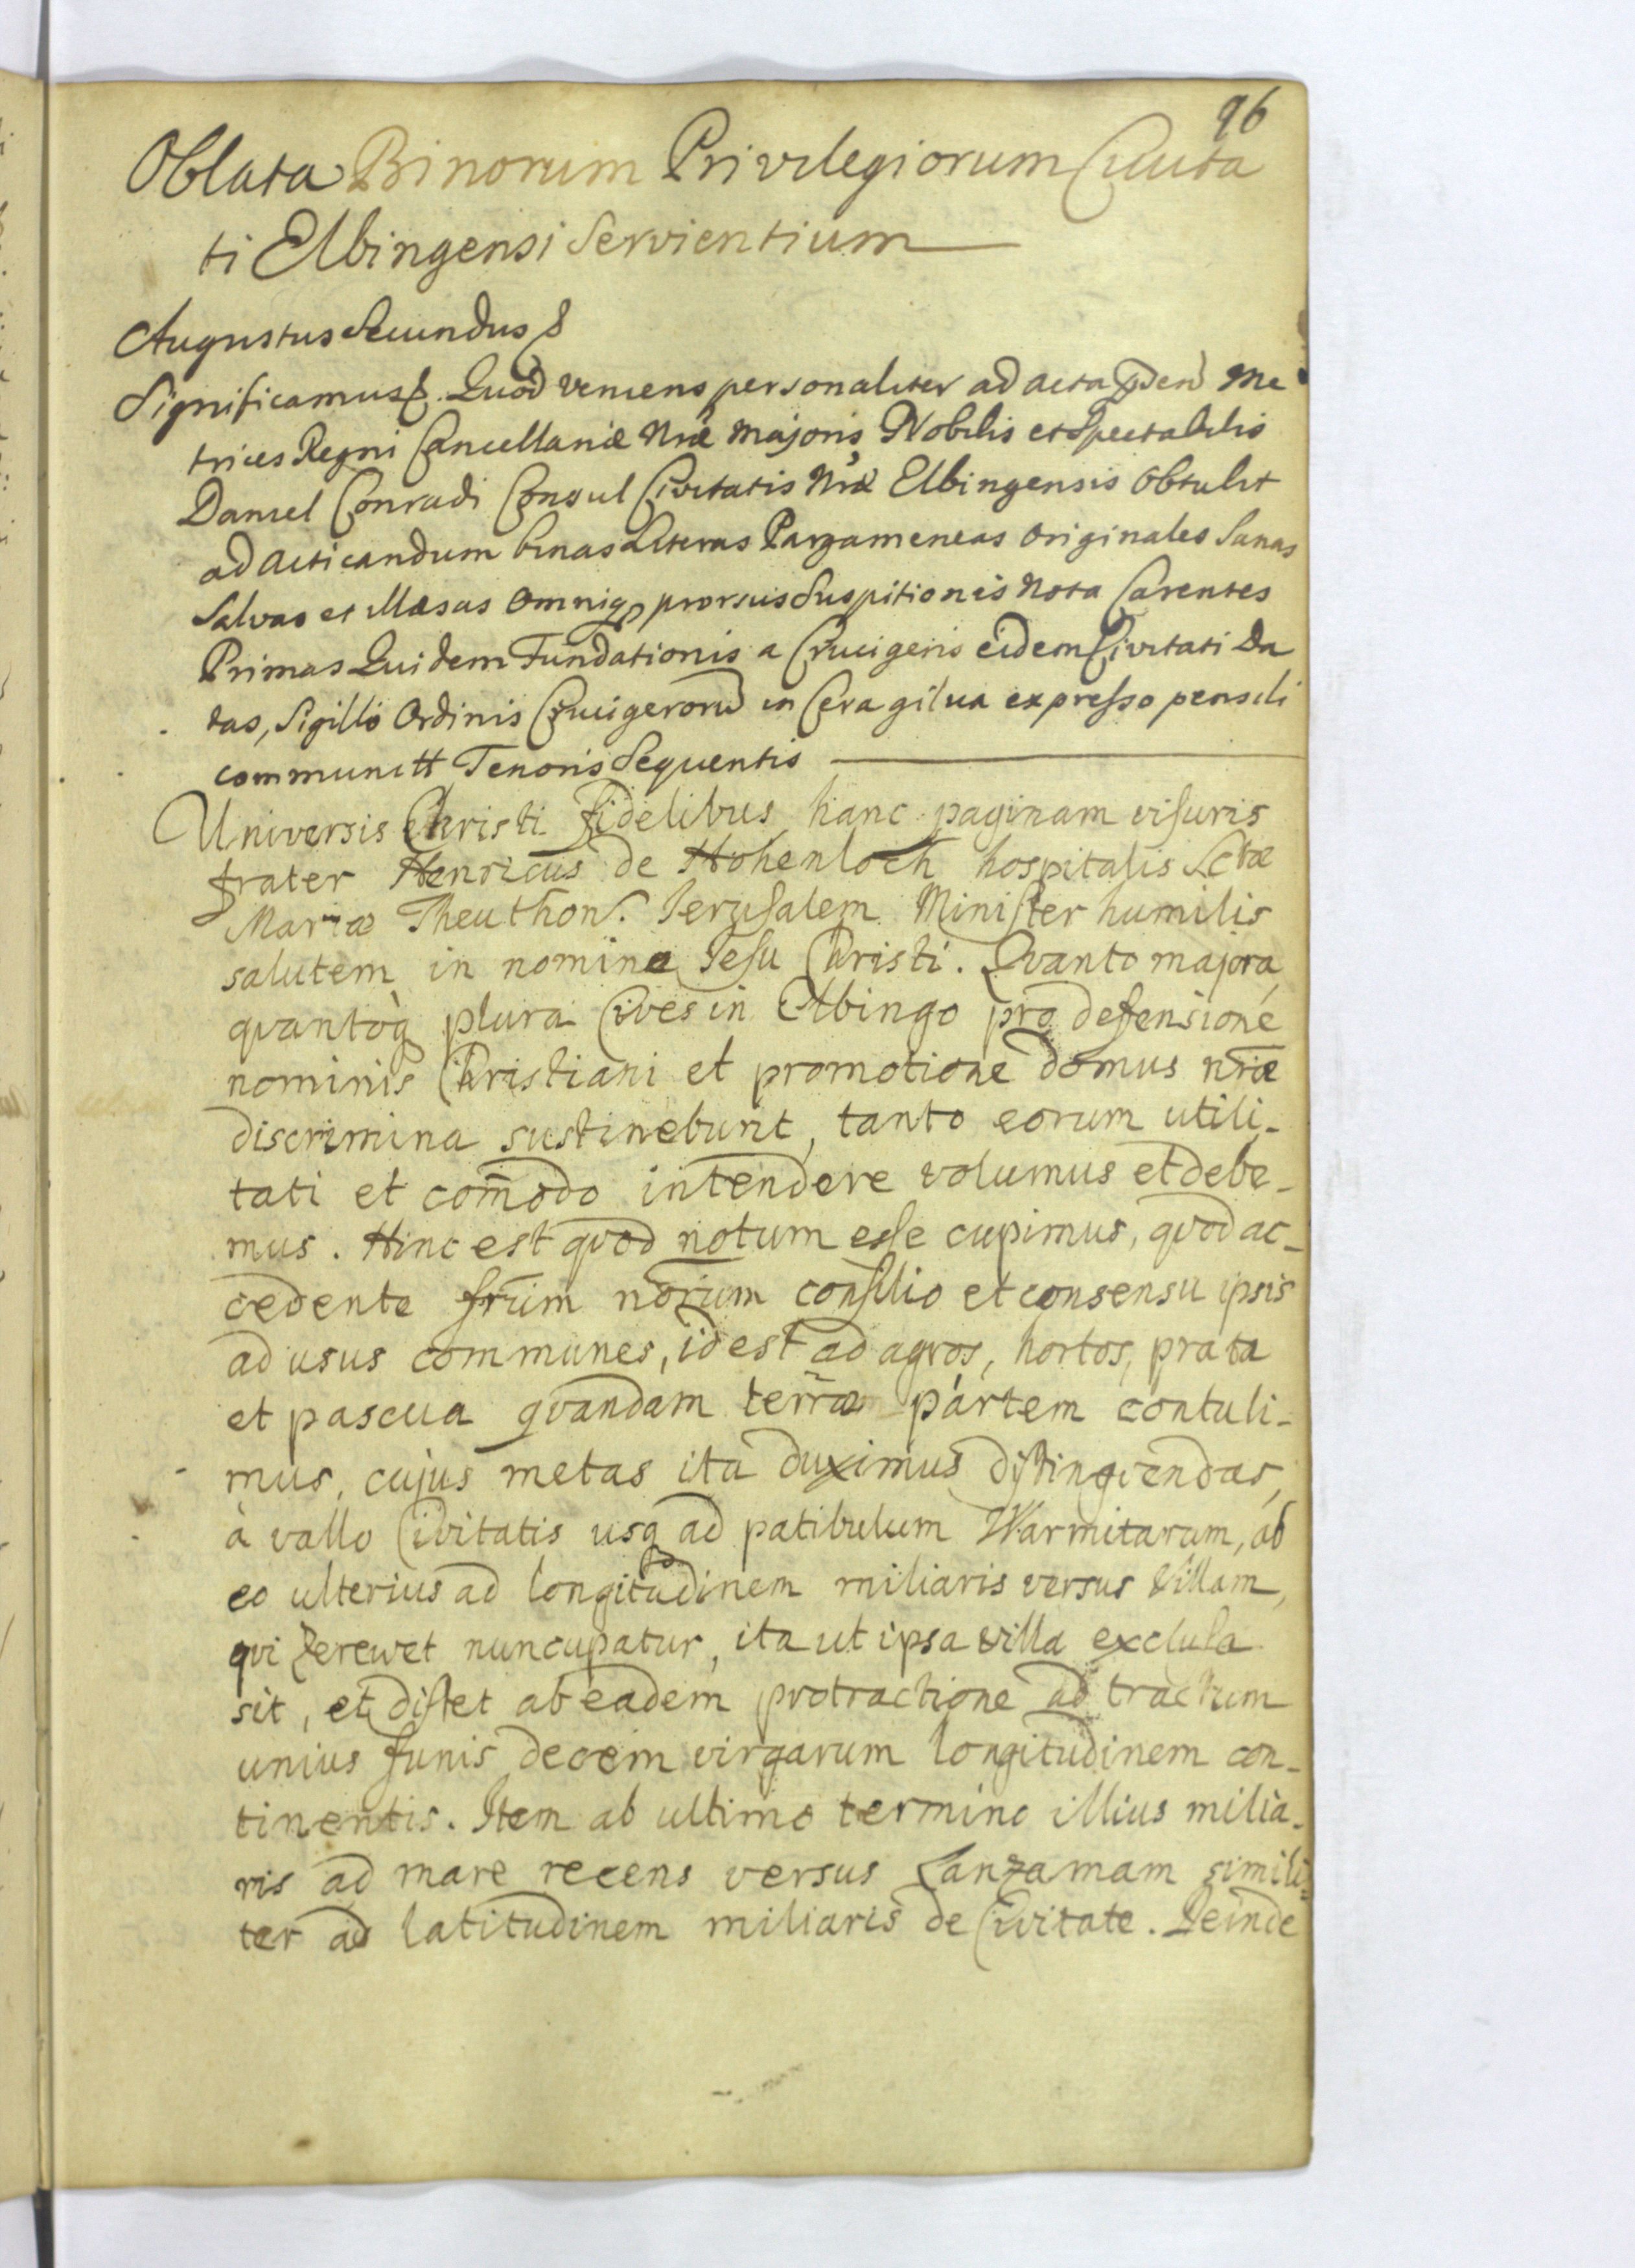 96
Oblata Binorum Privilegiorum Civita
ti Elbingensi Servientium
Augustus Secundus &
Significamus &. Quod veniens personaliter ad acta pñsen Me
trices Regni Cancellariæ Nræ Majoris, Nobilis et Spectabilis
Daniel Conradi Consul Civitatis Nræ Elbingensis obtulit
ad acticandum binas Literas Pargameneas originales Sanas
Salvas et Illæsas omniq prorsus Suspitionis nota Carentes
Primas Quidem Fundationis a Crucigeris eidem Civitati Da
tas, Sigillo Ordinis Crucigeroru in Cera gilva expresso pensili
communitt Tenoris Sequentis
Universis Christi fidelibus hanc paginam visuris
frater Henricus de Hohenloch hospitalis Sctæ
Mariæ Theuthon. Jerusalem Minister humilis
salutem in nomine Jesu Christi. Qvanto majora,
qvantoq plura Cives in Elbingo pro defensione
nominis Christiani et promotione domus nræ
discrimina sustinebunt, tanto eorum utili-
tati et com̄odo intendere volumus et debe-
mus. Hinc est qvod notum esse cupimus, qvod ac-
cedente frum nōrum consilio et consensu ipsis
ad usus communes, id est ad agros, hortos, prata
et pascua qvandam terræ partem contuli-
mus, cujus metas ita duximus distingvendas,
à vallo Civitatis usq ad patibulum Warmitarum, ab
eo ulterius ad longitudinem miliaris versus Villam,
qvi Zerewet nuncupatur, ita ut ipsa villa exclusa
sit, et distet ab eadem protractione ad tractum
unius funis decem virgarum longitudinem con-
tinentis. Item ab ultimo termino illius milia-
ris ad mare recens versus Lanzamam simili-
ter ad latitudinem miliaris de Civitate. Deinde